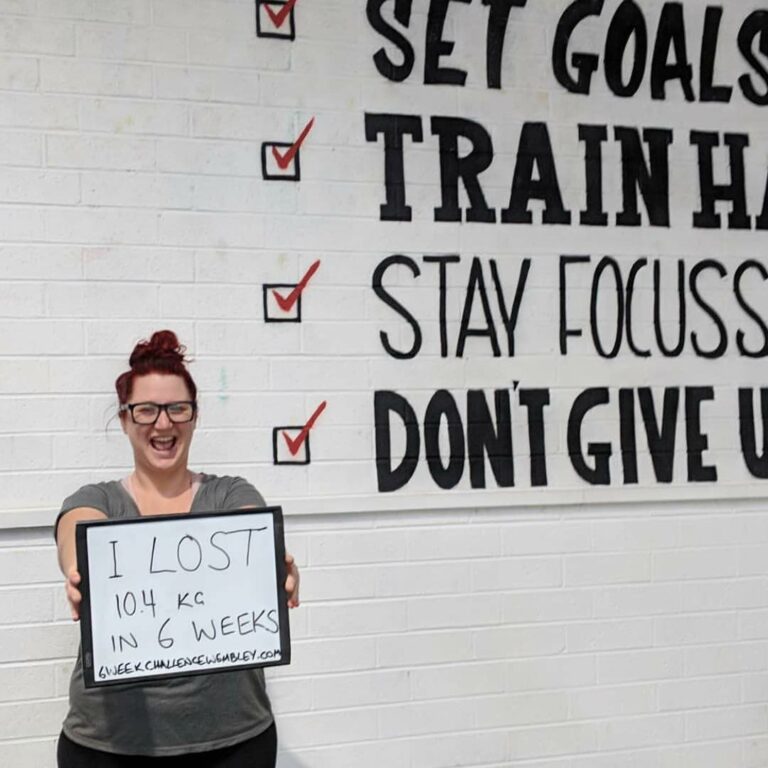 SET GOALS
TRAIN HA
STAY FOCUSS
DON'T GIVE U
I LOST
10.4 KG
IN 6 WEEKS
6WEEKCHALLENGEWEMBLEY.COM